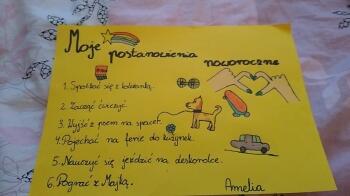 Moje postanowienia
noworoczne
1. Spotkać się z koleżanką.
2. Zacząć ćwiczyć
3. Wyjść z psem na spacer.
4. Pojechać na ferie do kuzynek.
5. Nauczyć się jeździć na deskorolce.
6. Pograć z Majką.
Amelia